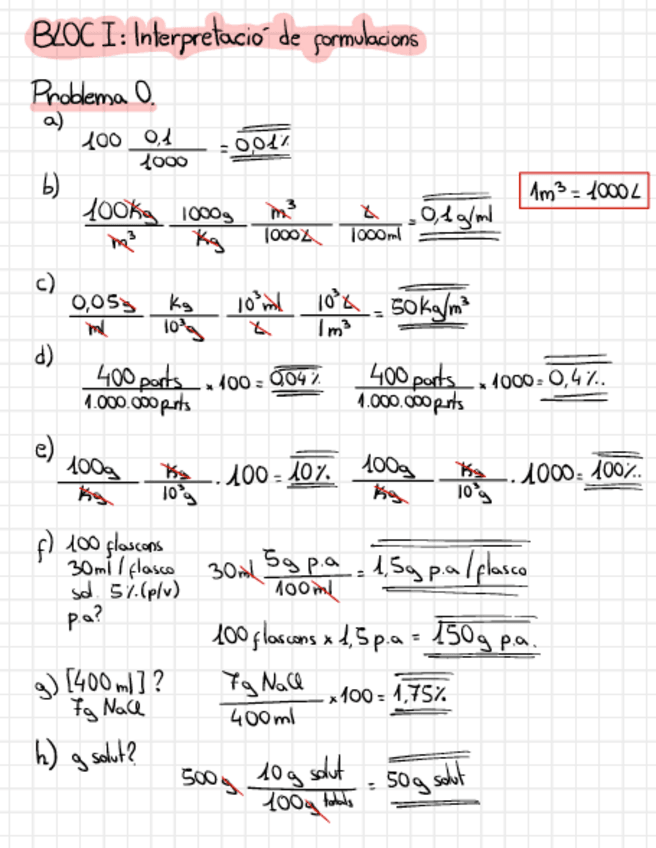 BLOC I: Interpretació de formulacions
Problema 0.
a)
100 0,1/1000 = 0,01%
b)
100Kg/m³ 1000g/Kg m³/1000L L/1000ml = 0,1g/ml
1m³ = 1000L
c)
0,05g/ml Kg/10³g 10³ml/L 10³L/1m³ = 50Kg/m³
d)
400 parts/1.000.000 parts x 100 = 0,04% 400 parts/1.000.000 parts x 1000 = 0,4%.
e)
100g/Kg Kg/10³g · 100 = 10% 100g/Kg Kg/10³g · 1000 = 100%.
f) 100 flascons
30ml / flasco
sol. 5% (p/v)
p.a?
30ml 5g p.a/100ml = 1,5g p.a / flasco
100 flascons x 1,5 p.a = 150g p.a.
g) [400 ml] ?
7g NaCl
7g NaCl/400 ml x 100 = 1,75%
h) g solut?
500g 10g solut/100g totals = 50g solut